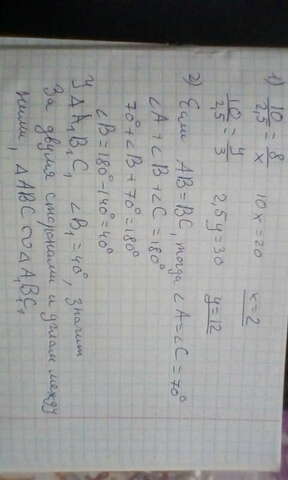 1) 10/2,5 = 8/x   10x = 20   x = 2
10/2,5 = y/3   2,5y = 30   y = 12
2) Если AB = BC, тогда ∠A = ∠C = 70°
∠A + ∠B + ∠C = 180°
70° + ∠B + 70° = 180°
∠B = 180° - 140° = 40°
У ΔA₁B₁C₁ ∠B₁ = 40°, значит
За двумя сторонами и углам между
ними, ΔABC ∞ ΔA₁B₁C₁